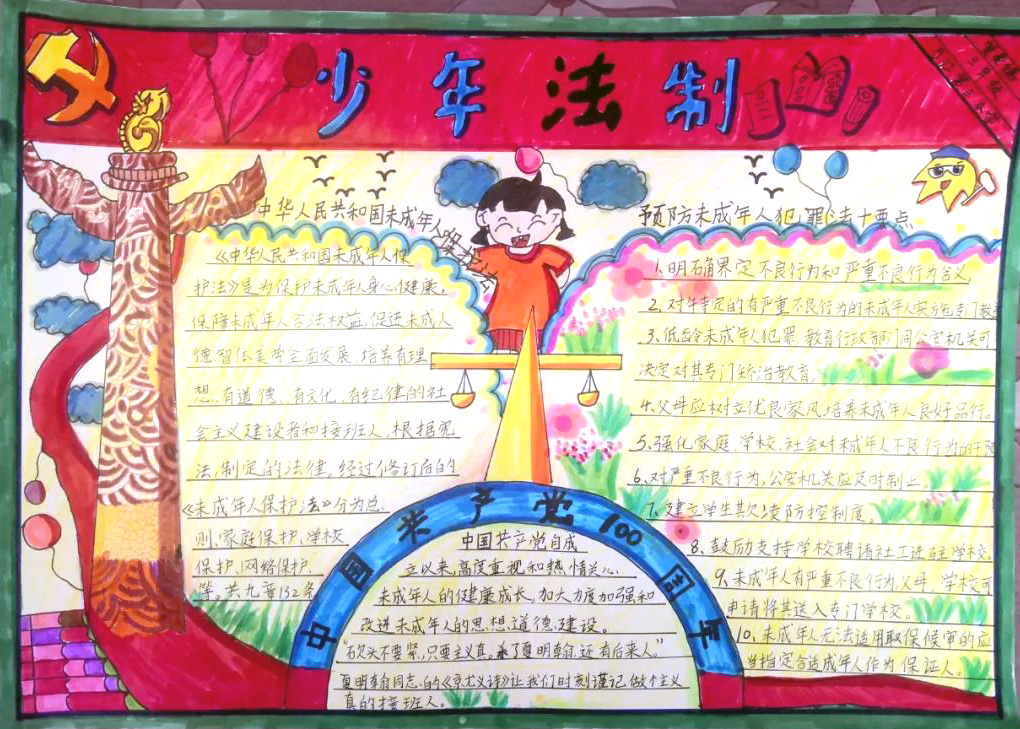 少年法制
中华人民共和国未成年人保
《中华人民共和国未成年人保
护法》是为保护未成年人身心健康,
保障未成年人合法权益,促进未成人
德智体美劳全面发展,培养有理
想、有道德、有文化、有纪律的社
会主义建设者和接班人,根据宪
法,制定的法律。经过修订后的
《未成年人保护法》分为总
则、家庭保护、学校
保护、网络保护、
等。共九章132条
中国共产党100周年
中国共产党自成
立以来,高度重视和热情关心
未成年人的健康成长,加大力度加强和
改进未成年人的思想道德建设。
"砍头不要紧,只要主义真。杀了夏明翰,还有后来人。"
夏明翰同志的《就义诗》让我们时刻谨记做个主义
真的接班人。
预防未成年人犯罪法十要点
1.明确界定不良行为和严重不良行为含义
2.对特定的有严重不良行为的未成年人实施专门教
3.低龄未成年人犯罪,教育行政部门同公安机关可
决定对其专门矫治教育,
4.父母应树立优良家风,培养未成年人良好品行。
5.强化家庭、学校、社会对未成年人不良行为的干预
6.对严重不良行为,公安机关应及时制止。
7.建立学生欺凌防控制度。
8、鼓励支持学校聘请社工进驻学校。
9、未成年人有严重不良行为,父母、学校可
申请将其送入专门学校。
10、未成年人无法适用取保候审的应
当指定合适成年人作为保证人。